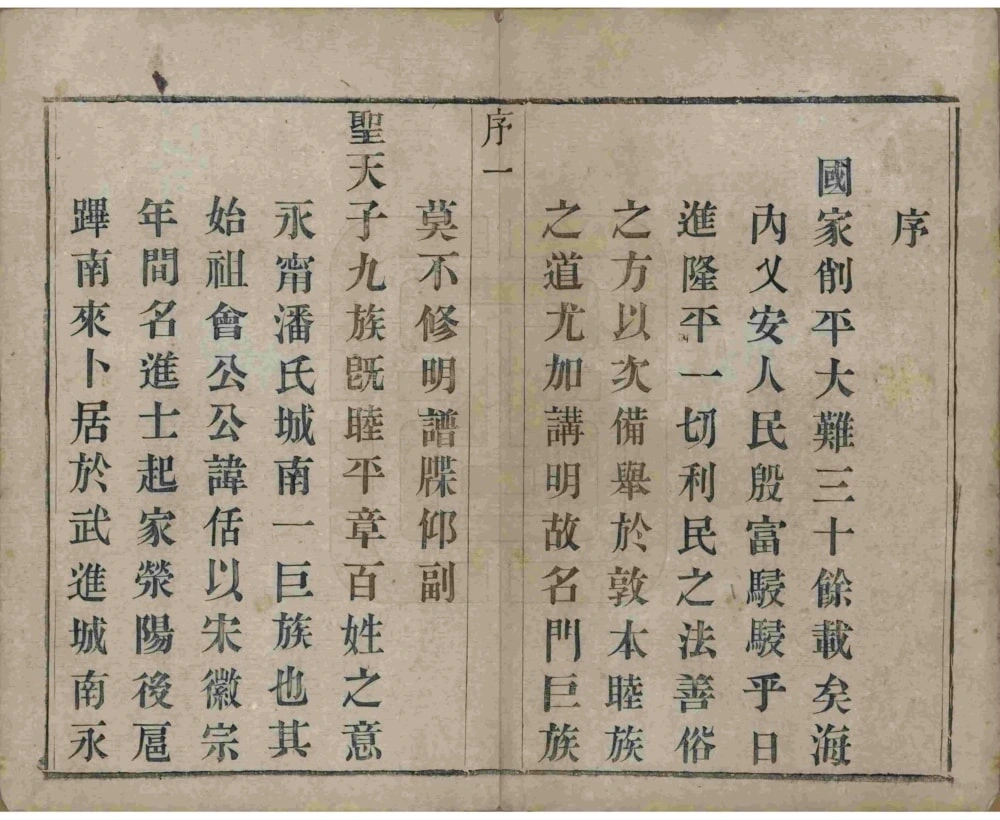 序
國家削平大難三十餘載矣海
內乂安人民殷富駸駸乎日
進隆平一切利民之法善俗
之方以次備舉於敦本睦族
之道尤加講明故名門巨族
序一
莫不修明譜牒仰副
聖天子九族旣睦平章百姓之意
永甯潘氏城南一巨族也其
始祖會公公諱佸以宋徽宗
年間名進士起家滎陽後扈
蹕南來卜居於武進城南永